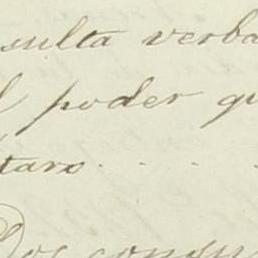 sulta verba
l poder qu
taro . . . .
Dos consu